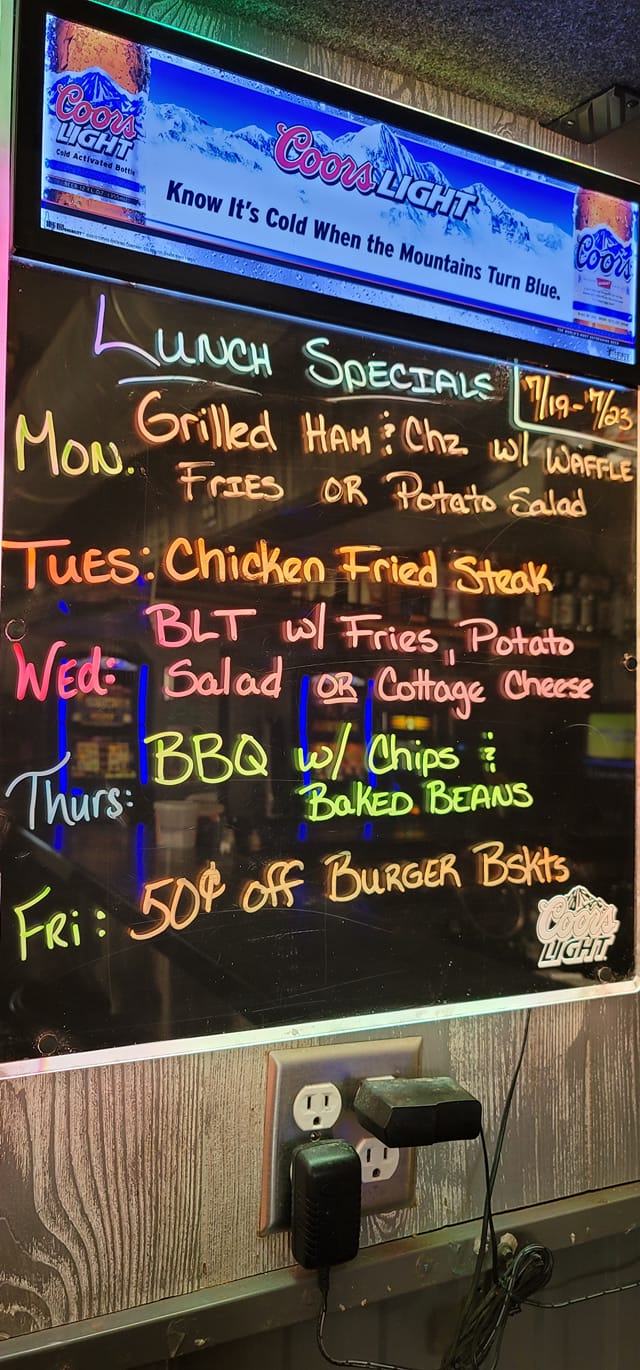 Coors
LIGHT
Cold Activated Bottle
Coors LIGHT
Know It's Cold When the Mountains Turn Blue.
Coors
LUNCH SPECIALS
7/19-7/23
MON. Grilled HAM & Chz w/ WAFFLE
FRIES OR Potato Salad
TUES: Chicken Fried Steak
BLT w/ Fries, Potato
Wed: Salad OR Cottage Cheese
BBQ w/ Chips &
Thurs: BAKED BEANS
Fri: 50¢ off BURGER Bskts
Coors
LIGHT